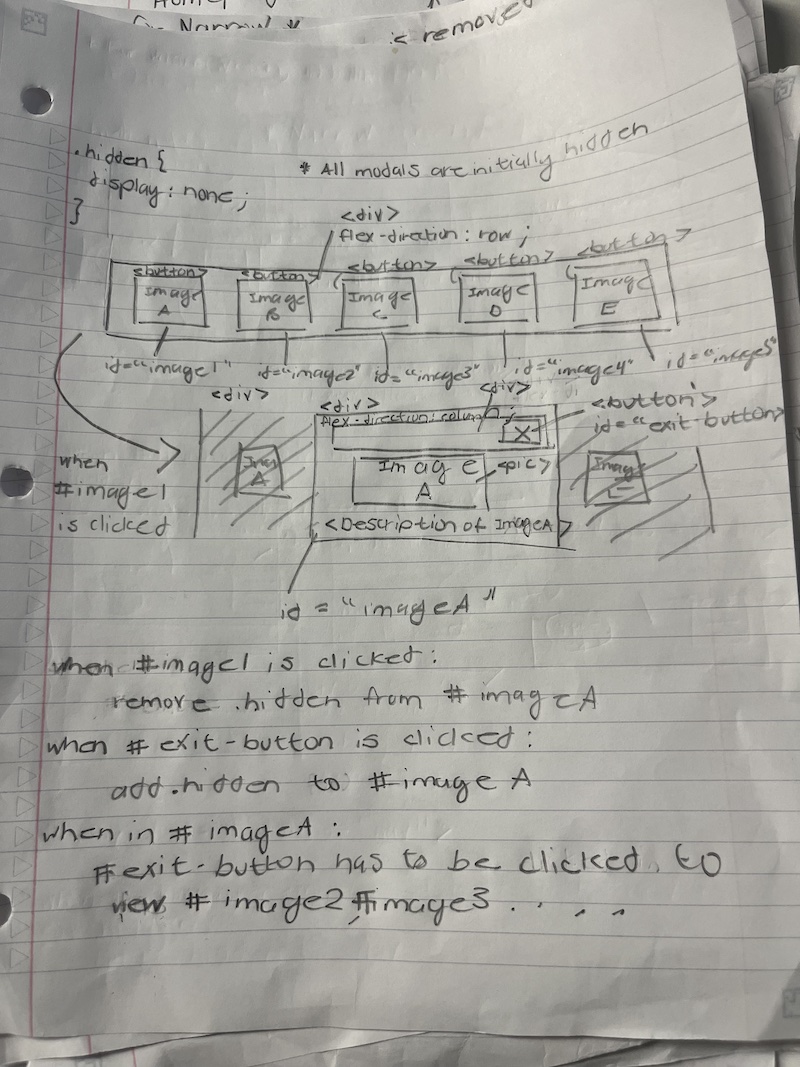 Narrow
remove
.hidden {
display: none;
}
* All modals are initially hidden
<div>
flex-direction: row;
<button>
<button>
<button>
<button>
<button>
Image
A
Image
B
Image
C
Image
D
Image
E
id="image1"
id="image2"
id="image3"
id="image4"
id="image5"
<div>
<div>
<div>
flex-direction: column;
X
<button>
id="exit-button>
when
#image1
is clicked
Image
A
Image
A
<pic>
Image
<Description of ImageA>
id = "imageA"
when #image1 is clicked:
remove .hidden from #imageA
when #exit-button is clicked:
add .hidden to #imageA
when in #imageA:
#exit-button has to be clicked to
view #image2, #image3 . . . .